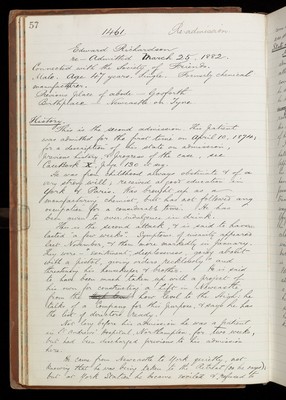 57
1461. Readmission
Edward Richardson
re-Admitted March 25. 1882.
Connected with the Society of Friends.
Male. Age 47 years. Single. Formerly chemical
manufacturer.
Previous place of abode - Gosforth
Birthplace - Newcastle on Tyne.
History.
This is the second admission. The patient
was admitted for the first time on April 10, 1874,
for a description of his state on admission,
previous history, & progress of the case, see
Casebook X. p.
He was from childhood always obstinate & of a
very strong will; received a good education in
York & Paris. Was brought up as a
manufacturing chemist, but has not followed any
occupation for a considerable time. He has
been given to over-indulgence in drink.
This is the second attack, & is said to have
lasted a few weeks. Symptoms of insanity appeared
last November, & then more markedly in January.
They were - "excitement, sleeplessness, going about
with a pistol, giving orders recklessly" and
threatening his housekeeper & brother. He is said
to have been much taken up with a project of
his own for constructing a Lift in Newcastle,
from the low level to the High; he
talks of a Company for this purpose, & says he has
the list of directors ready.
Not long before his admission he was a patient
in St Andrews' Hospital, Northampton for two weeks,
but had been discharged previous to his admission
here.
He came from Newcastle to York quietly, not
knowing that he was being taken to the Retreat
but at York Station he became excited & refused to